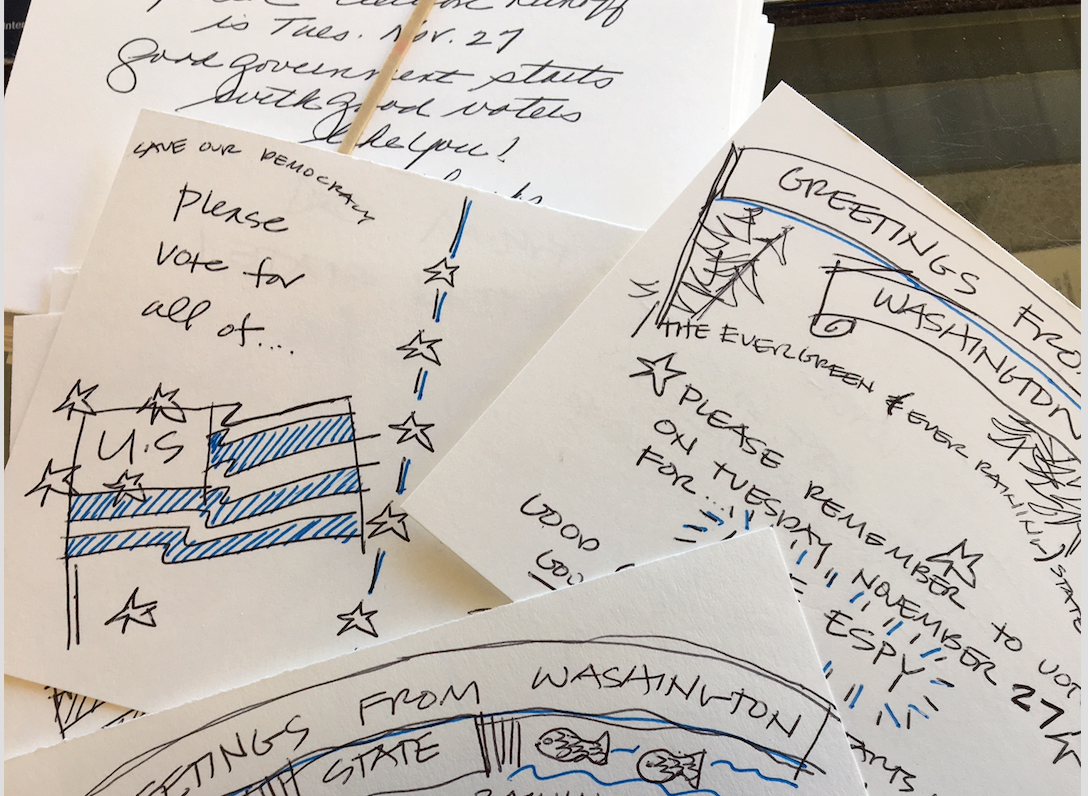 Runoff
is Tues. Nov. 27
Good government starts
with good voters
like you!
SAVE OUR DEMOCRACY
Please
vote for
all of....
U.S
GREETINGS FRO
WASHINGTON
THE EVERGREEN & EVER RAINING) STATE
PLEASE REMEMBER TO VOT
ON TUESDAY, NOVEMBER 27
FOR... ESPY
GOOD
GOO
GREETINGS FROM WASHINGTON
STATE